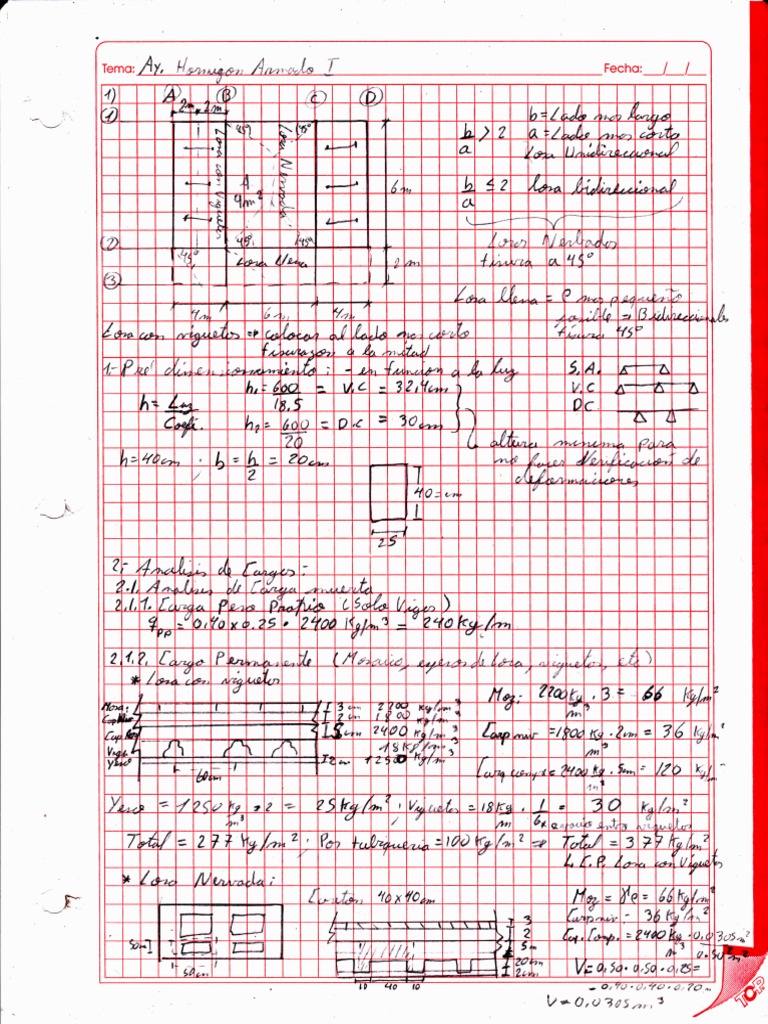 Tema: Ay. Hormigon Armado I Fecha: / /
1) A B C D
2m 2m
1
b = Lado mas largo
b/a > 2 a = Lado mas corto
Losa Unidireccional
45° 45°
Losa con Viguetas
Losa Nervada
A
4m²
6m
b/a ≤ 2 losa bidireccional
2
45° 45° 45°
Losa llena
2m
3
Losas Nerbadas
fisura a 45°
4m 6m 4m
Losa llena = e mas pequeño
posible ⇒ Bidireccionales
fisura 45°
Losa con viguetas ⇒ colocar al lado mas corto
fisurazon a la mitad
1.- Pre dimensionamiento: - en funcion a la luz
S.A.
V.C
DC
h = Luz/Coefi.
h₁ = 600/18.5 = V.C = 32,4cm
h₂ = 600/20 = D.C = 30cm
altura minima para
no hacer Verificacion de
deformaciones
h = 40cm ; b = h/2 = 20cm
40=cm
25
2.- Analisis de Cargas:
2.1. Analisis de Carga muerta
2.1.1. Carga Peso Propio (Solo Vigas)
qpp = 0,40 x 0.25 · 2400 Kg/m³ = 240 Kg/m
2.1.2. Cargo Permanente (Mosaico, de losa, viguetas, etc)
* Losa con viguetas
Mosa:
Vigue
Yeso
3cm 2200 Kg/m³
2cm 1800 Kg/m³
5cm 2400 Kg/m³
18 Kg/m
2cm 1250 Kg/m³
60cm
Moz: 2200 Kg/m³ · 3 = 66 Kg/m²
Carp niv = 1800 Kg/m³ · 2cm = 36 Kg/m²
Carq comp = 2400 Kg/m³ · 5cm = 120 Kg/m²
Yeso = 1250 Kg/m³ · 2 = 25 Kg/m² ; Viguetas = 18 Kg/m · = 30 Kg/m²
espacio entre viguetas
Total = 277 Kg/m² ; Por tabiqueria = 100 Kg/m² ⇒ Total = 377 Kg/m²
L.C.P. Losa con Viguetas
* Losa Nervada:
50m
50cm
40x40cm
3
2
5m
20cm
2cm
10 40 10
Moz = γe = 66 Kg/m²
Carp niv = 36 Kg/m²
Cap. Comp. = 2400 Kg/m³ · 0,0305m³/0.50² m²
V = 0,50 · 0,50 · 0,25 =
- 0,40 · 0,40 · 0,20 m
V = 0,0305 m³
TOP